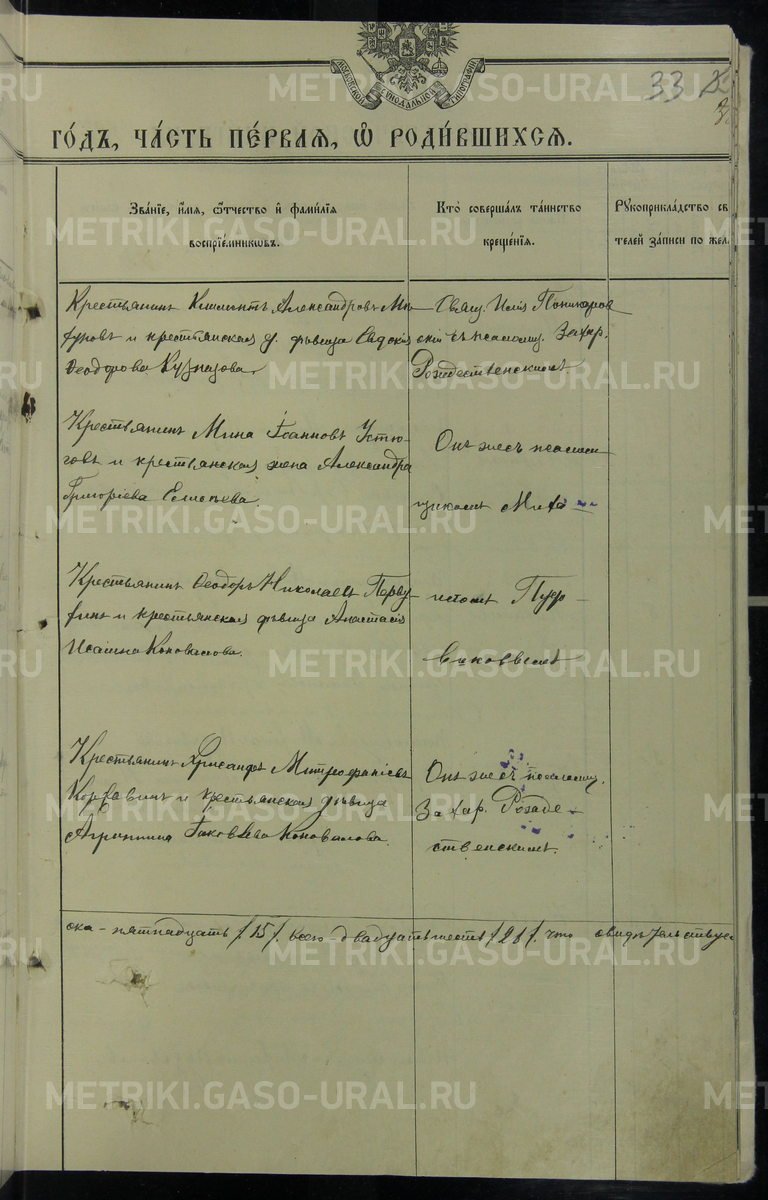 МОСКОВСКОЙ СѴНОДАЛЬНОЙ ТИПОГРАФІИ
33
го́дъ, ча́сть пе́рвая, ѡ҆ роди́вшихся.
Зва́нїе, и҆́мя, ѻ҆́тчество и҆ фами́лїя
воспрїе́мникѡвъ.
Кто̀ соверша́лъ та́инство
креще́нїя.
Рꙋкоприкла́дство св
телей за́писи по жел.
Крестьянинъ Климентъ Александровъ Ми
и крестьянская д. дѣвица Евдокія
Ѳеодорова Кузнецова.
Свящ. Илія Пономарев
скій съ псаломщ. Захар.
Рождественскимъ
Крестьянинъ Мина Іоанновъ Устю
говъ и крестьянская жена Александра
Григоріева
Онъ же съ псалом
щикомъ Мито
Крестьянинъ Ѳеодоръ Николаевъ Перву
хинъ и крестьянская дѣвица Анастасія
Исаіина Коновалова.
Крестьянинъ Хрисанфъ Митрофаніевъ
Корзавинъ и крестьянская дѣвица
Агриппина Іаковлева Коновалова.
Онъ же съ псаломщ.
Захар. Рожде-
ственскимъ.
ска - пятнадцать /15/. всего - двадцать шесть /26/. что свидѣтельствуе
METRIKI.GASO-URAL.RU